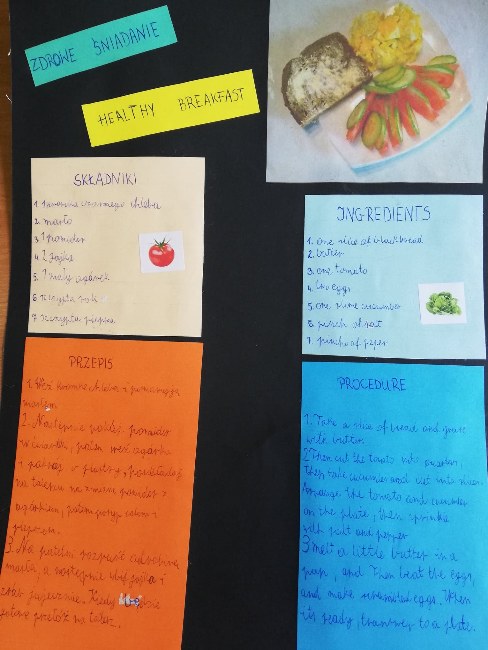 ZDROWE ŚNIADANIE
HEALTHY BREAKFAST
SKŁADNIKI
1 kromka czarnego chleba
2. masło
3. 1 pomidor
4. 2 jajka
5. 1 mały ogórek
6. szczypta soli
7. szczypta pieprzu
INGREDIENTS
1. one slice of blackbread
2. butter
3. one tomato
4. two eggs
5. one cucumber
6. pinch of salt
7. pinch of peper
PRZEPIS
1. Weź kromkę chleba i posmaruj ją
masłem.
2. Następnie pokrój pomidor
w ćwiartki, potem weź ogórka
i pokrój w plastry, poukładaj
na talerzu na zmianę pomidor z
ogórkiem, potem posyp solą i
pieprzem.
3. Na patelni rozpuść odrobinę
masła, a następnie wbij jajka i
zrób jajecznicę. Kiedy
gotowe przełóż na talerz.
PROCEDURE
1. Take a slice of bread and
with butter.
2 Then cut the tomato into quarters,
then take cucumber and cut into slices.
Arrange the tomato and cucumber
on the plate, then sprinkle
with salt and pepper
3 Melt a little butter in a
pan, and then beat the eggs,
and make scrambled eggs. When
its ready, transfer to a plate.